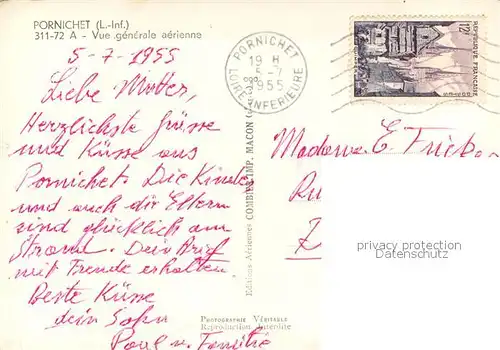 PORNICHET (L.-Inf.)
311-72 A - Vue générale aérienne
5-7-1955
Liebe Mutter,
Herzlichste Grüsse
und Küsse aus
Pornichet. Die Kinder
und auch die Eltern
sind glücklich am
Strand. Dein Brief
mit Freude erhalten
Beste Küsse
dein Sohn
Paul u. Familie
PORNICHET
19 H
5-7
1955
LOIRE-INFERIEURE
12F
REPUBLIQUE FRANÇAISE
Editions Aériennes COMBIER IMP. MACON
Madame E.
privacy protection
Datenschutz
PHOTOGRAPHIE VÉRITABLE
Reproduction Interdite